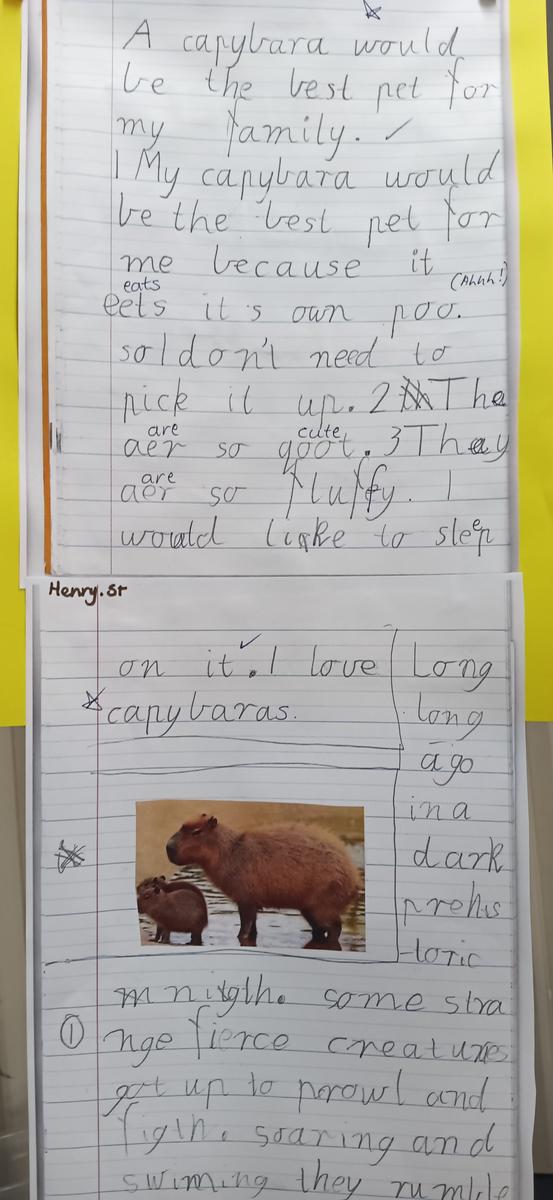 A capybara would
be the best pet for
my family.
1 My capybara would
be the best pet for
me because it
eats (Ahhh!)
eets it's own poo.
so I don't need to
pick it up. 2 The
are cute
aer so qoot. 3 Thay
are
aer so fluffy. I
would like to sleep
Henry.St
on it. I love
capybaras.
Long
long
ago
in a
dark
prehis
toric
nitgth. some stra
① nge fierce creatures
got up to porowl and
figth. soaring and
swiming they rumble